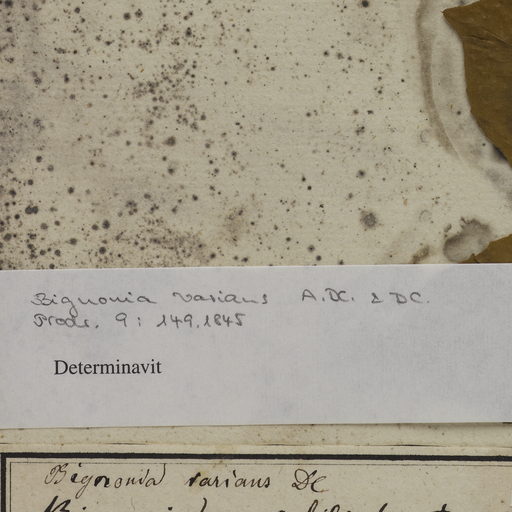 Bignonia varians A.DC. & DC.
Prodr. 9: 149, 1845
Determinavit
Bignonia varians DC